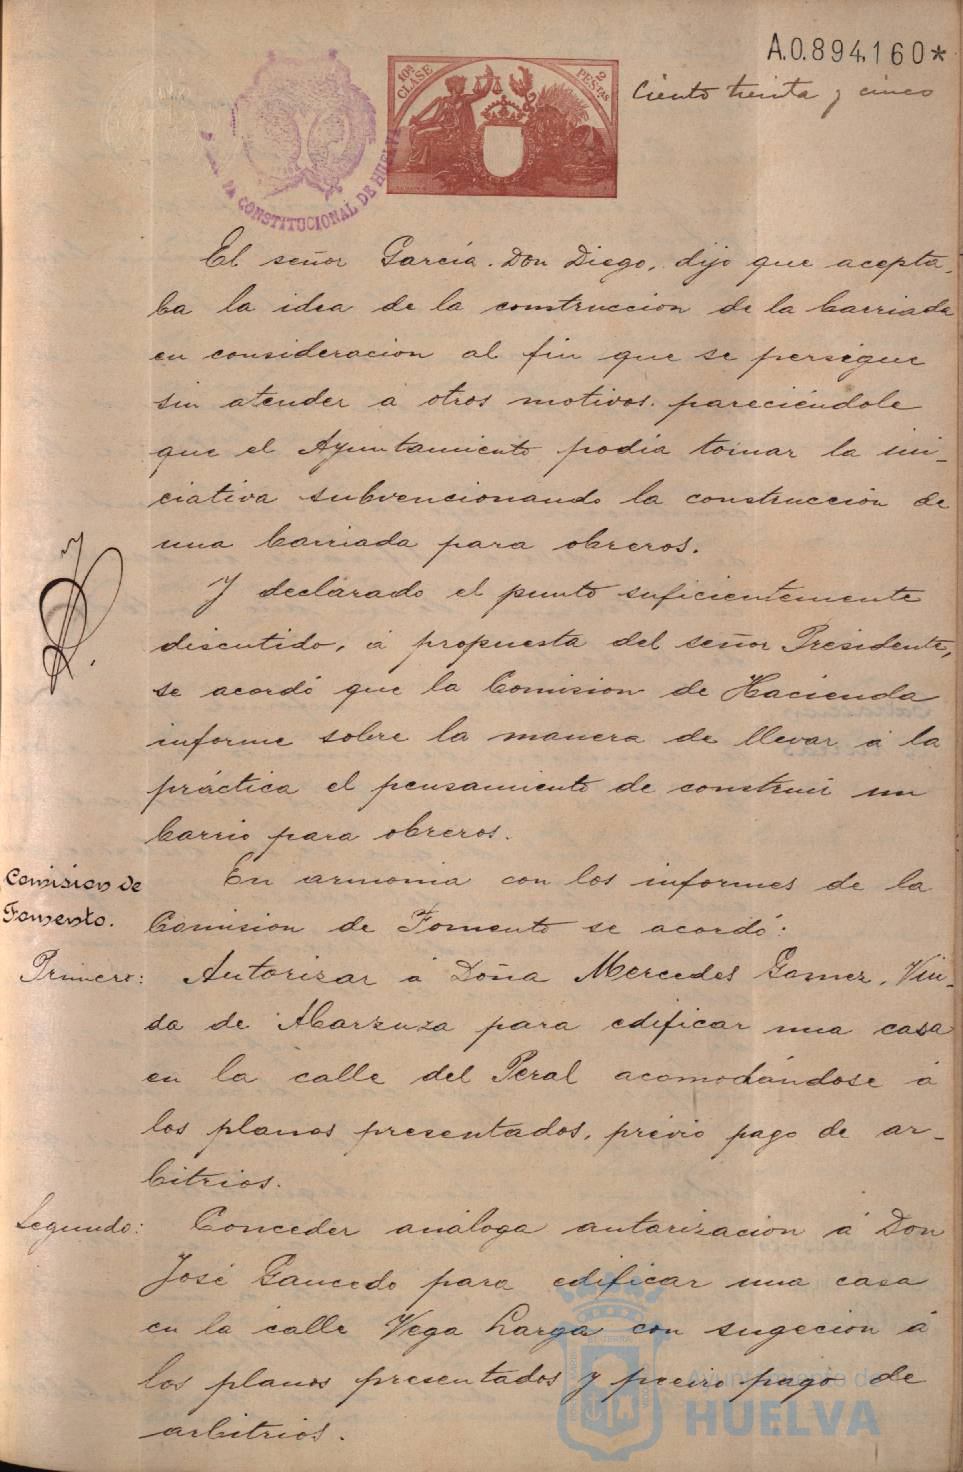 A.0.894,160*
10ª CLASE
2 PESETAS
Ciento treinta y cinco
CONSTITUCIONAL DE HUELVA
El señor García. Don Diego, dijo que acepta-
ba la idea de la construccion de la barriada
en consideracion al fin que se persigue
sin atender á otros motivos. pareciéndole
que el Ayuntamiento podía tomar la ini-
ciativa subvencionando la construccion de
una barriada para obreros.
Y declarado el punto suficientemente
discutido, á propuesta del señor Presidente,
se acordó que la Comision de Hacienda
informe sobre la manera de llevar á la
práctica el pensamiento de construir un
barrio para obreros.
Comision de
Fomento.
En armonia con los informes de la
Comision de Fomento se acordó:
Primero: Autorizar á Doña Mercedes Gamez, Viu-
da de Abarzuza para edificar una casa
en la calle del Peral acomodándose á
los planos presentados, previo pago de ar-
bitrios.
Segundo: Conceder análoga autorizacion á Don
José Gaucedo para edificar una casa
en la calle Vega Larga con sugecion á
los planos presentados y previo pago de
arbitrios.
Ayuntamiento de
HUELVA